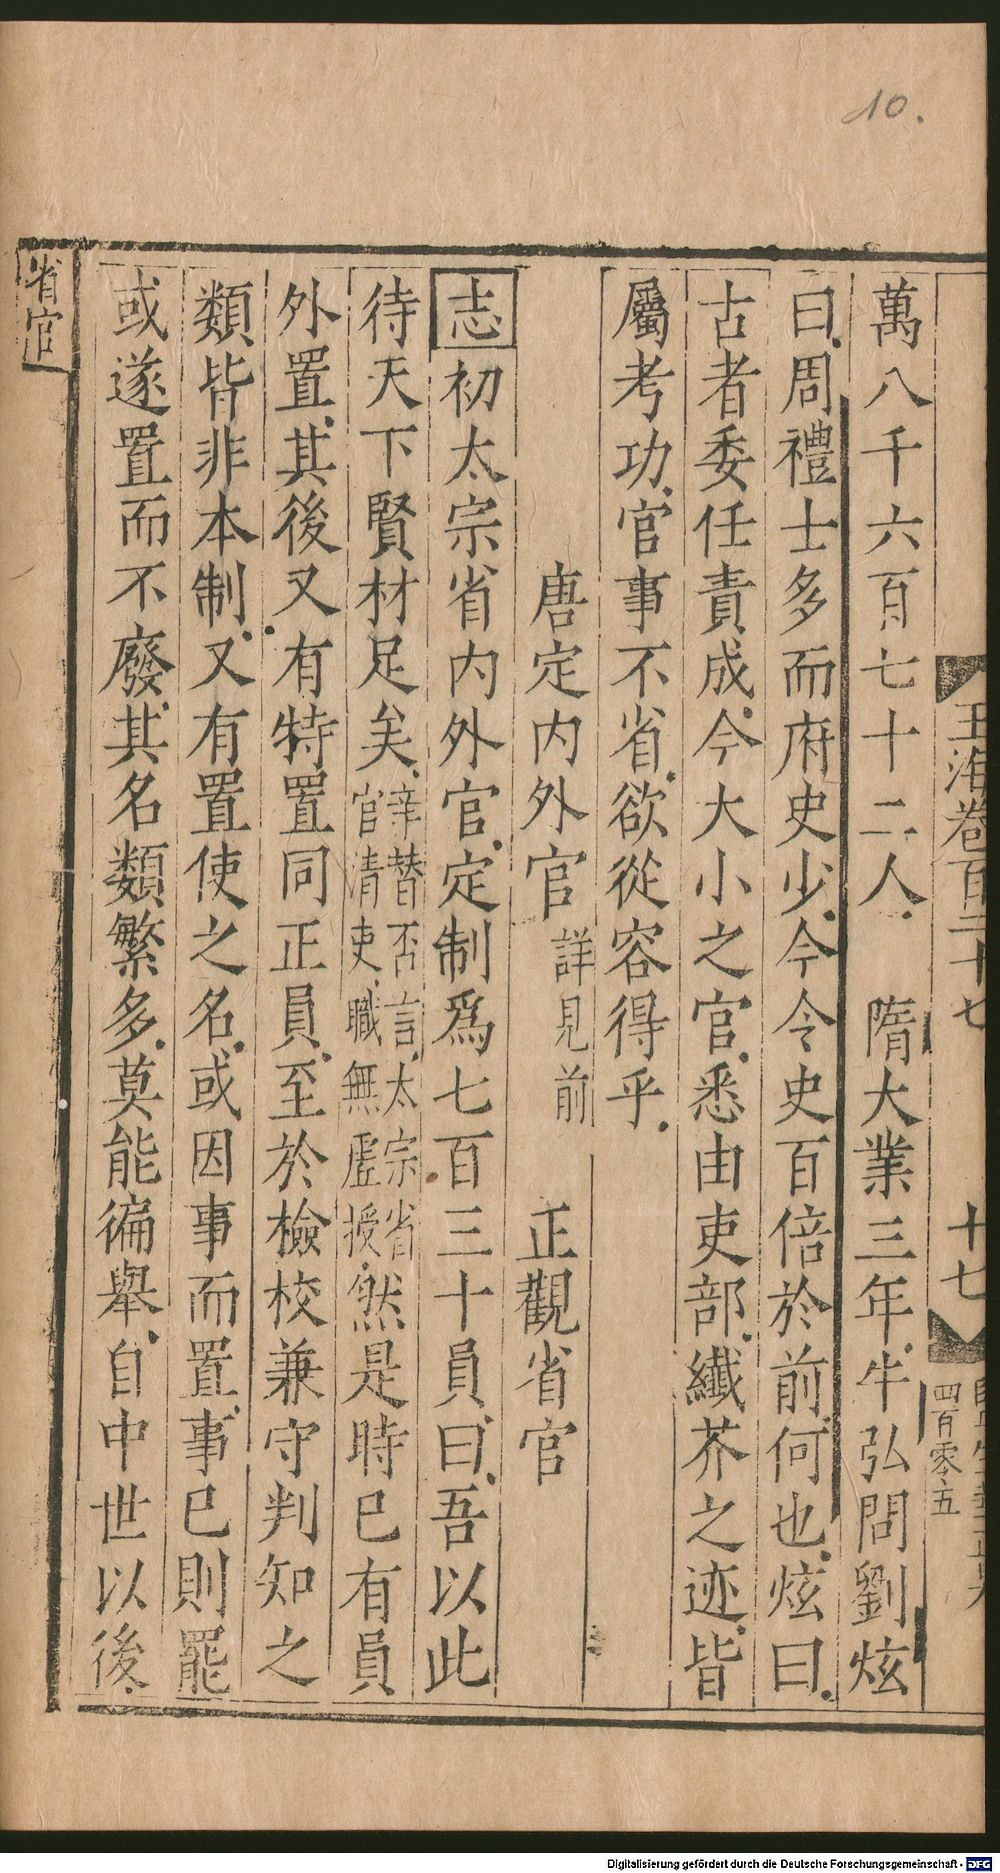 10.
玉海卷百二十七
十七
四百零五
萬八千六百七十二人　隋大業三年牛弘問劉炫
曰周禮士多而府史少今令史百倍於前何也炫曰
古者委任責成今大小之官悉由吏部纖芥之迹皆
屬考功官事不省欲從容得乎
唐定內外官　詳見前　正觀省官
志初太宗省內外官定制爲七百三十員曰吾以此
待天下賢材足矣
辛替否言太宗省
官清吏職無虛授
然是時已有員
外置其後又有特置同正員至於檢校兼守判知之
類皆非本制又有置使之名或因事而置事已則罷
或遂置而不廢其名類繁多莫能徧舉自中世以後
省官
Digitalisierung gefördert durch die Deutsche Forschungsgemeinschaft - DFG